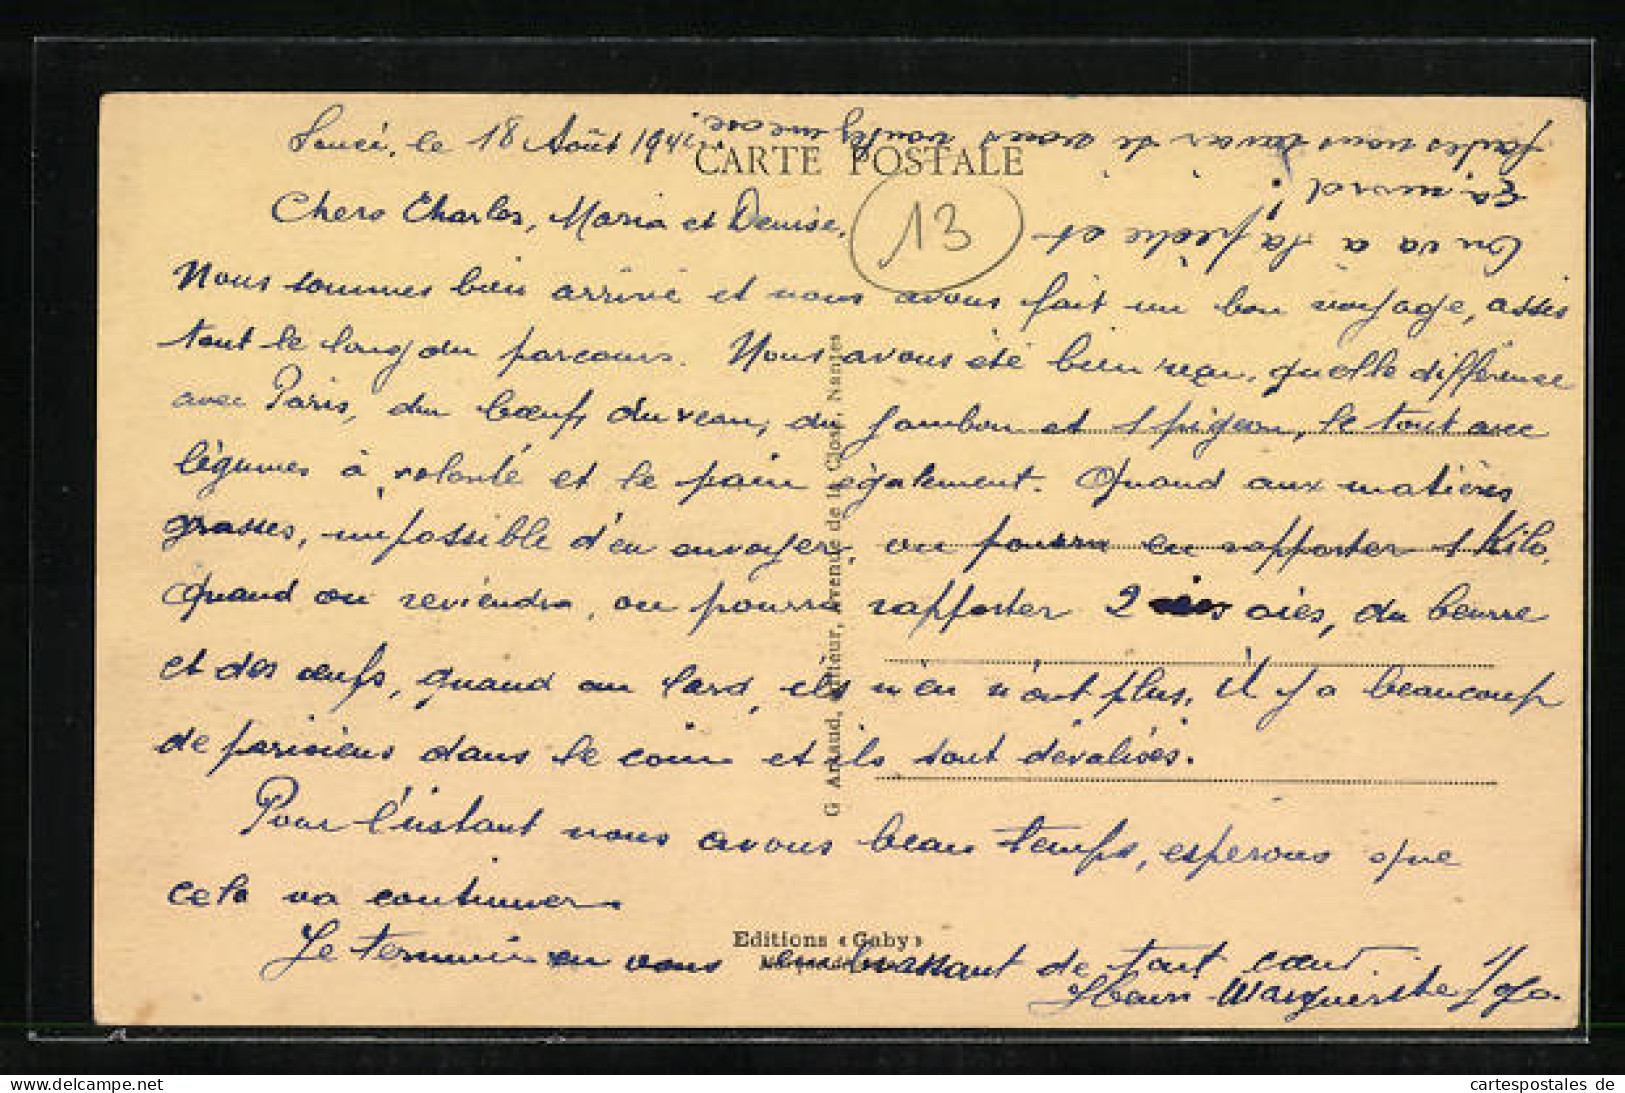 le 18 Août 1941
CARTE POSTALE
Chers Charles, Maria et Denise,
13
Nous sommes bien arrivé et nous avons fait un bon voyage, assis
tout le long du parcours. Nous avons été bien reçu, quelle différence
avec Paris, du bœuf, du veau, du jambon et 1 pigeon, le tout avec
légumes à volonté et le pain également. Quand aux matières
grasses, impossible d'en envoyer, on pourra en rapporter 1 Kilo.
Quand on reviendra, on pourra rapporter 2 oies, du beurre
et des œufs, quand au lard, ils n'en n'ont plus, il y a beaucoup
de parisiens dans le coin et ils sont dévalisés.
Pour l'instant nous avons beau temps, esperons que
cela va continuer.
Je termine en vous embrassant de tout cœur
Henri
On va à la pêche et
ça mord !
G Artaud, Editeur, Avenue de la Close, Nantes
Editions « Gaby »
cartespostales de
https://www.delcampe.net